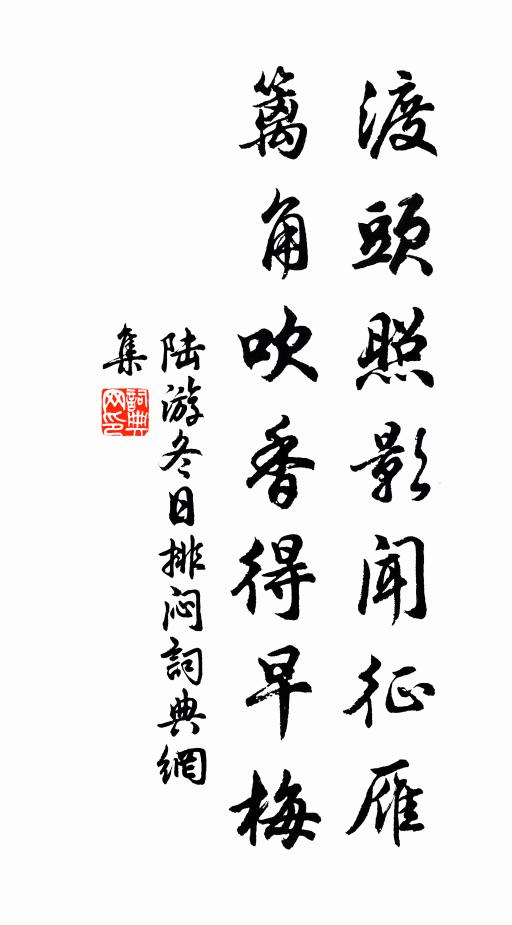 渡頭照影聞征雁
籬角吹香得早梅
陆游冬日排闷詞典網
集
詞典
网印